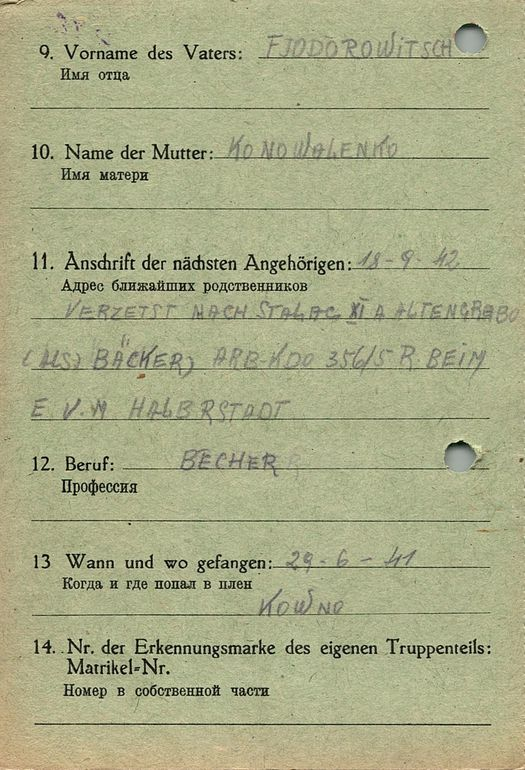 9. Vorname des Vaters: FJODOROWITSCH
Имя отца
10. Name der Mutter: KONOWALENKO
Имя матери
11. Anschrift der nächsten Angehörigen: 18-9-42
Адрес ближайших родственников
VERZETST NACH STALAG XI A ALTENGRABO
(ALS) BÄCKER) ARB-KDO 356/5 R BEIM
E.V.M HALBRSTADT
12. Beruf: BECHER
Профессия
13 Wann und wo gefangen: 29-6-41
Когда и где попал в плен
KOWNO
14. Nr. der Erkennungsmarke des eigenen Truppenteils:
Matrikel-Nr.
Номер в собственной части